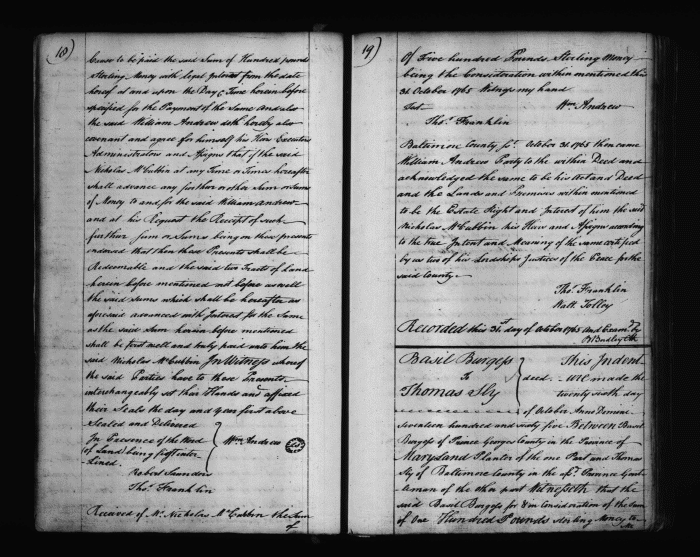 18)
Cause to be paid the said Sum of Hundred pounds
Sterling Money with legal Interest from the date
hereof at and upon the Day & Time herein before
specified for the Payment of the Same And also
the said William Andrew doth hereby also
covenant and agree for himself his Heirs Executors
Administrators and Assigns that if the said
Nicholas McCubbin at any Time or Times hereafter
shall advance any further or other Sum or Sums
of Money to and for the said William Andrew
and at his Request the Receipt of such
further Sum or Sums being on these presents
indorsed that then these Presents shall be
Redeemable and the said two Tracts of Land
herein before mentioned not before as well
the said Sums which shall be hereafter as
aforesaid advanced with Interest for the Same
as the said Sum herein before mentioned
shall be first well and truly paid unto him the
said Nicholas McCubbin In Witness whereof
the said Parties have to these Presents
interchangeably set their Hands and affixed
their Seals the day and year first above
Sealed and Delivered
In Presence of the Word
(of Land) being first inter-
Lined.
Wm Andrew
Robert Saunders
Thos. Franklin
Received of Mr. Nicholas McCubbin the Sum
of
19)
Of Five hundred Pounds Sterling Money
being the Consideration within mentioned this
31 October 1765 Witness my hand
Test
Wm Andrew
Thos. Franklin
Baltimore County sc. October 31. 1765 then came
William Andrew Party to the within Deed and
acknowledged the same to be his Act and Deed
and the Lands and Premises within mentioned
to be the Estate Right and Interest of him the said
Nicholas McCubbin his Heirs and Assigns according
to the true Intent and Meaning of the same certifyed
by us two of his Lordships Justices of the Peace for the
said County.
Thos. Franklin
Walt. Tolley
Recorded this 31st day of October 1765 And Examd. By
B Dudley Clk
Basil Burgess
To
Thomas Sly
deed.
This Indent
ure made the
twenty sixth day
of October Anno Domini
Seventeen hundred and sixty five Between Basil
Burgess of Prince Georges County in the Province of
Maryland Planter of the one Part and Thomas
Sly of Baltimore County in the afd. Province Gent
leman of the other part Witnesseth that the
said Basil Burgess for & in Consideration of the Sum
of One Hundred Pounds sterling Money to